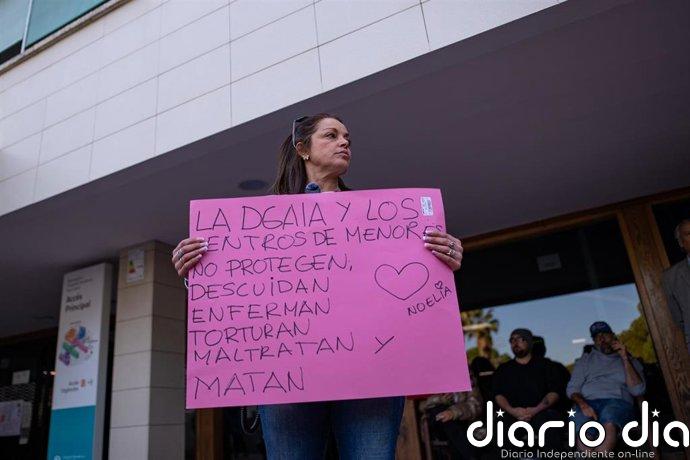 LA DGAIA Y LOS
CENTROS DE MENORES
NO PROTEGEN,
DESCUIDAN
ENFERMAN
TORTURAN
MALTRATAN Y
MATAN
NOELIA
Accés
Principal
diario dia
Diario Independiente on-line